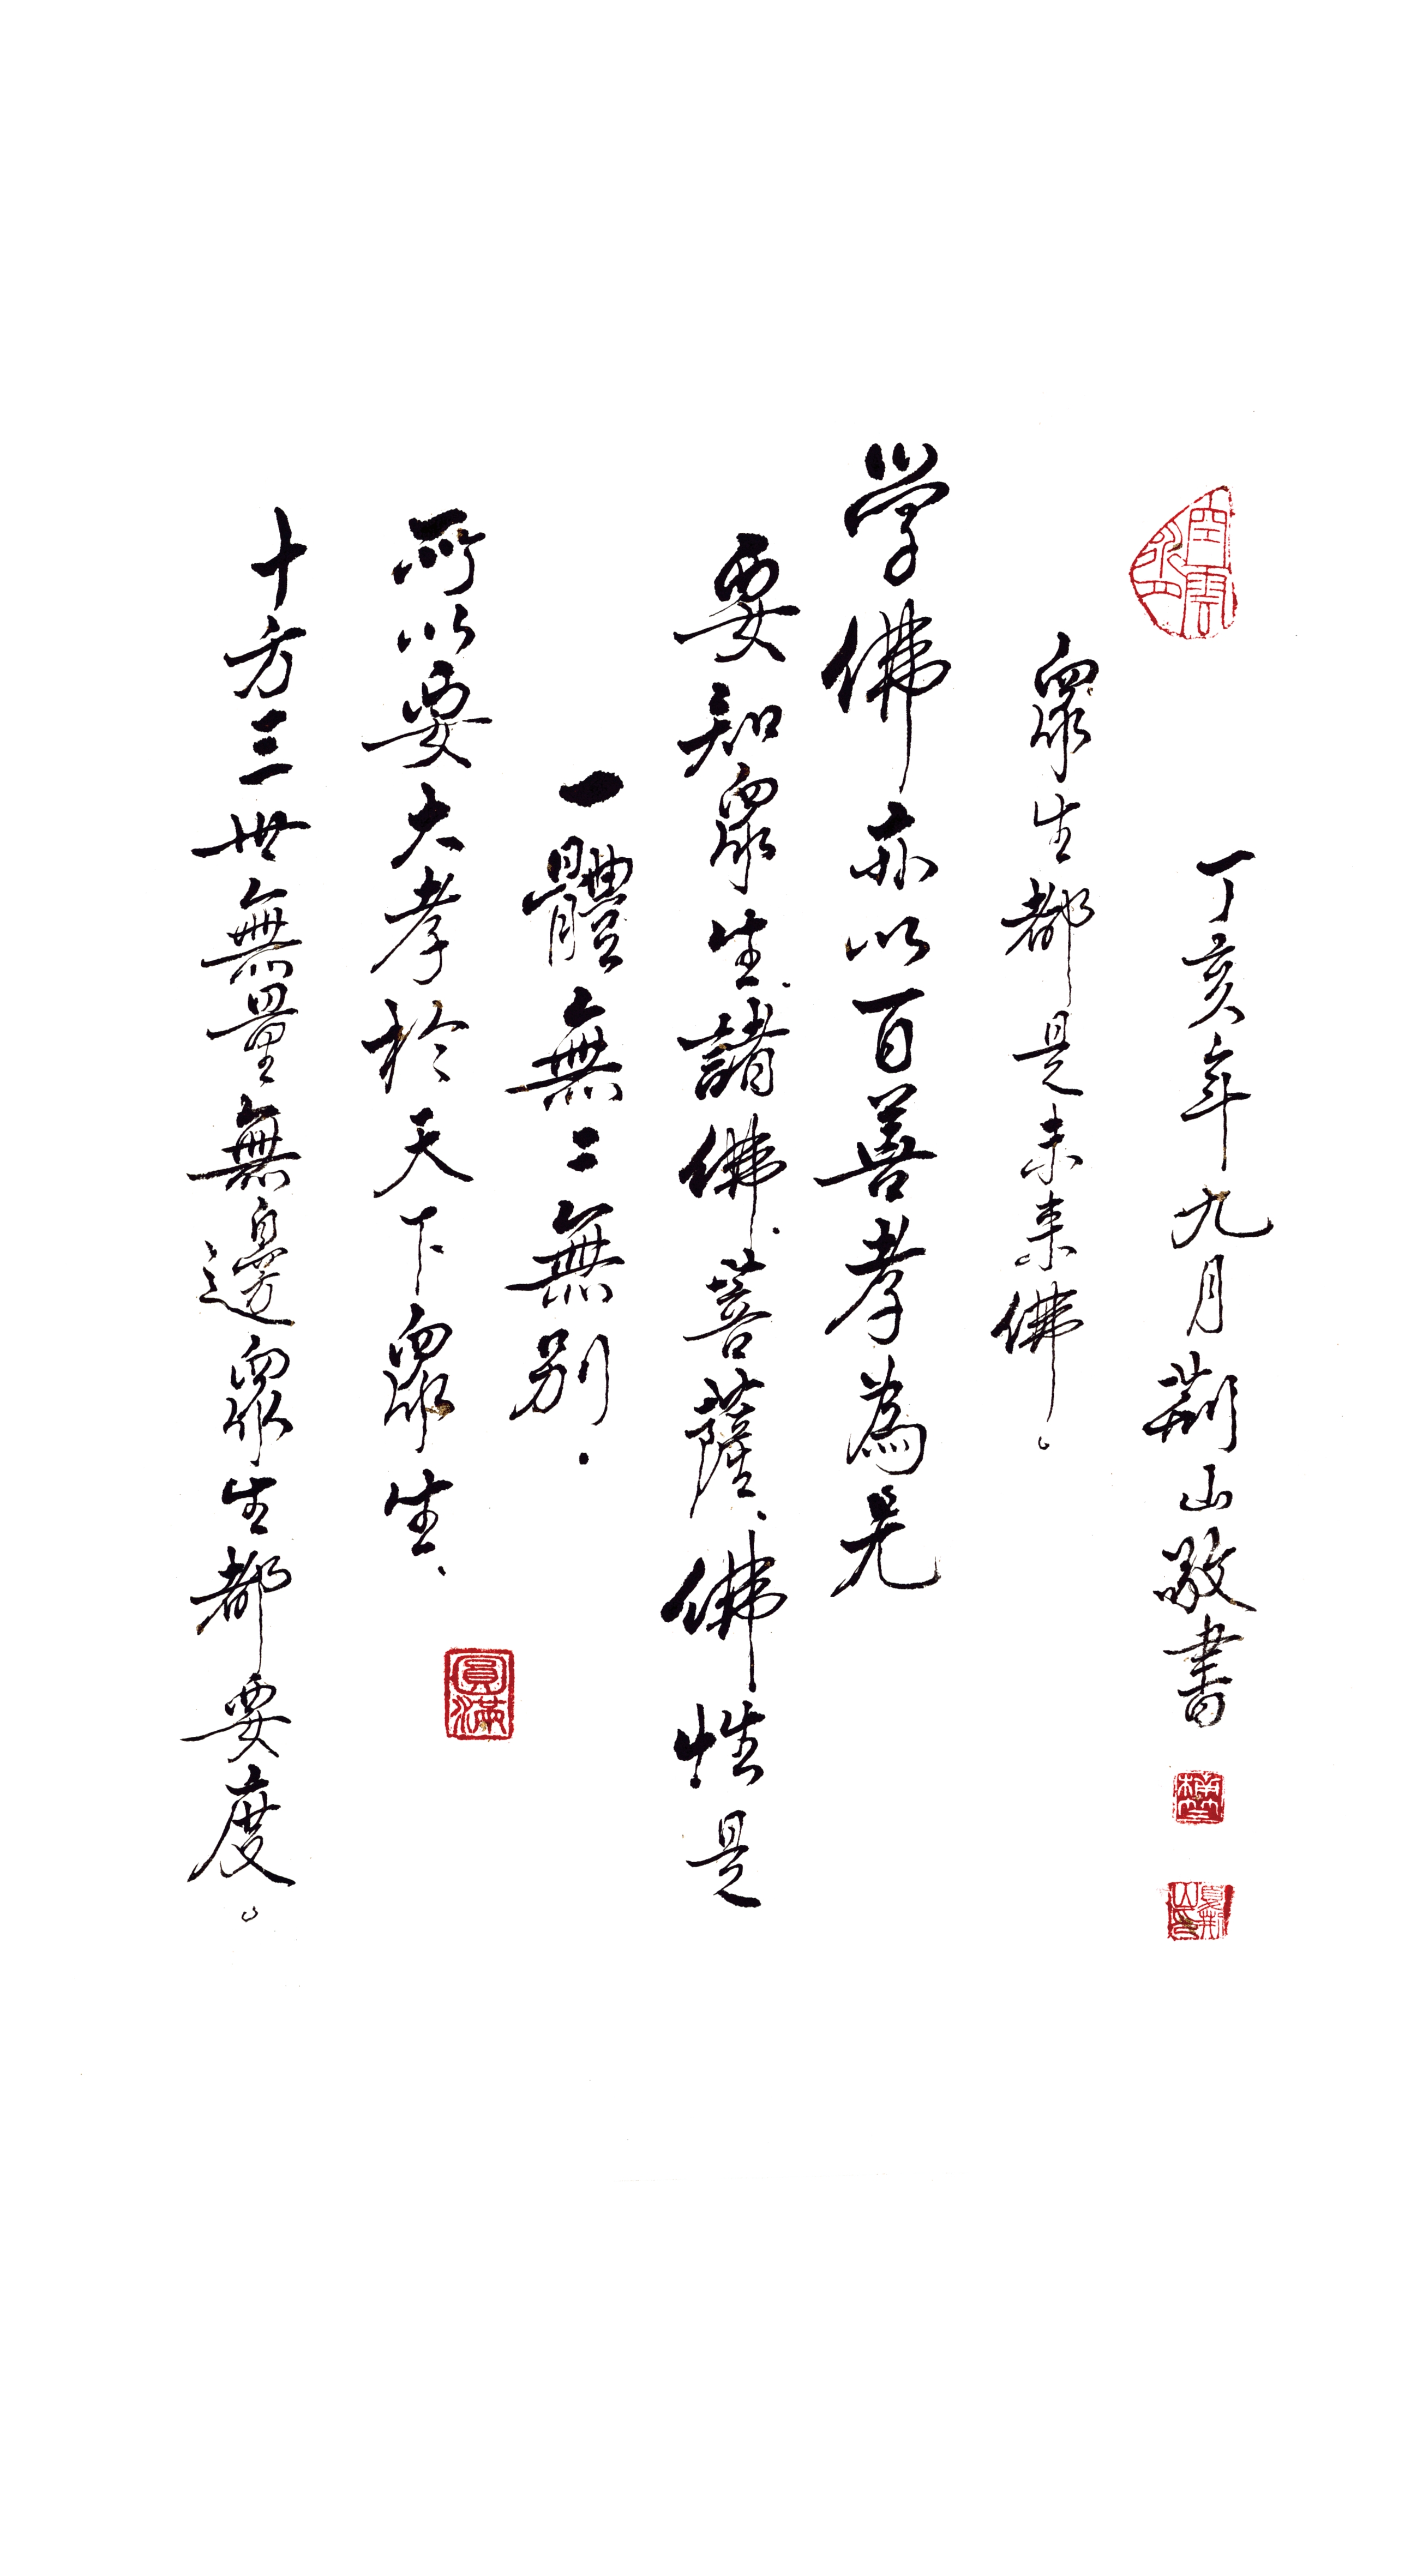 学佛亦以百善孝為先
要知眾生、諸佛、菩薩、佛性是
一體無二無別.
所以要大孝於天下眾生、
十方三世無量無邊眾生都要度。
眾生都是未来佛。
丁亥年九月荊山敬書
圓滿